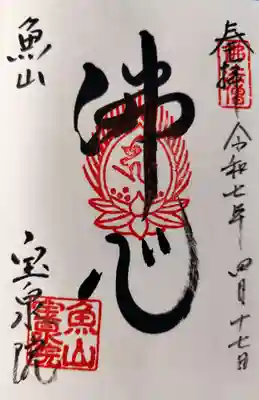 奉拝 令和七年 四月十七日
佛心
魚山
宝泉院
魚山